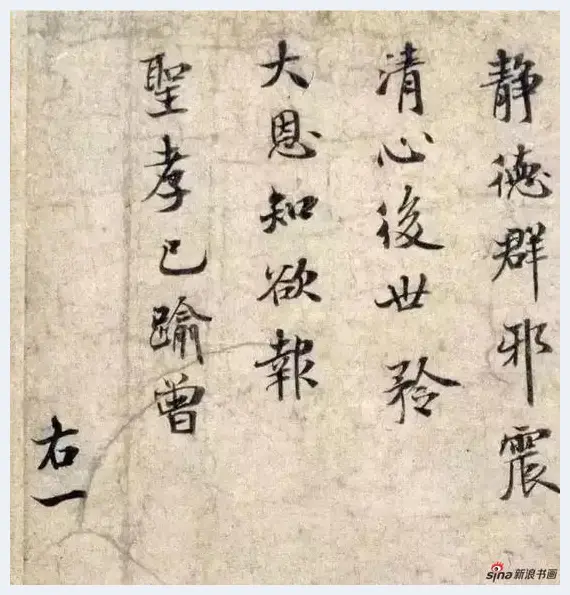 静德群邪震
清心後世矜
大恩知欲報
聖孝已踰曽
右一
sina新浪书画